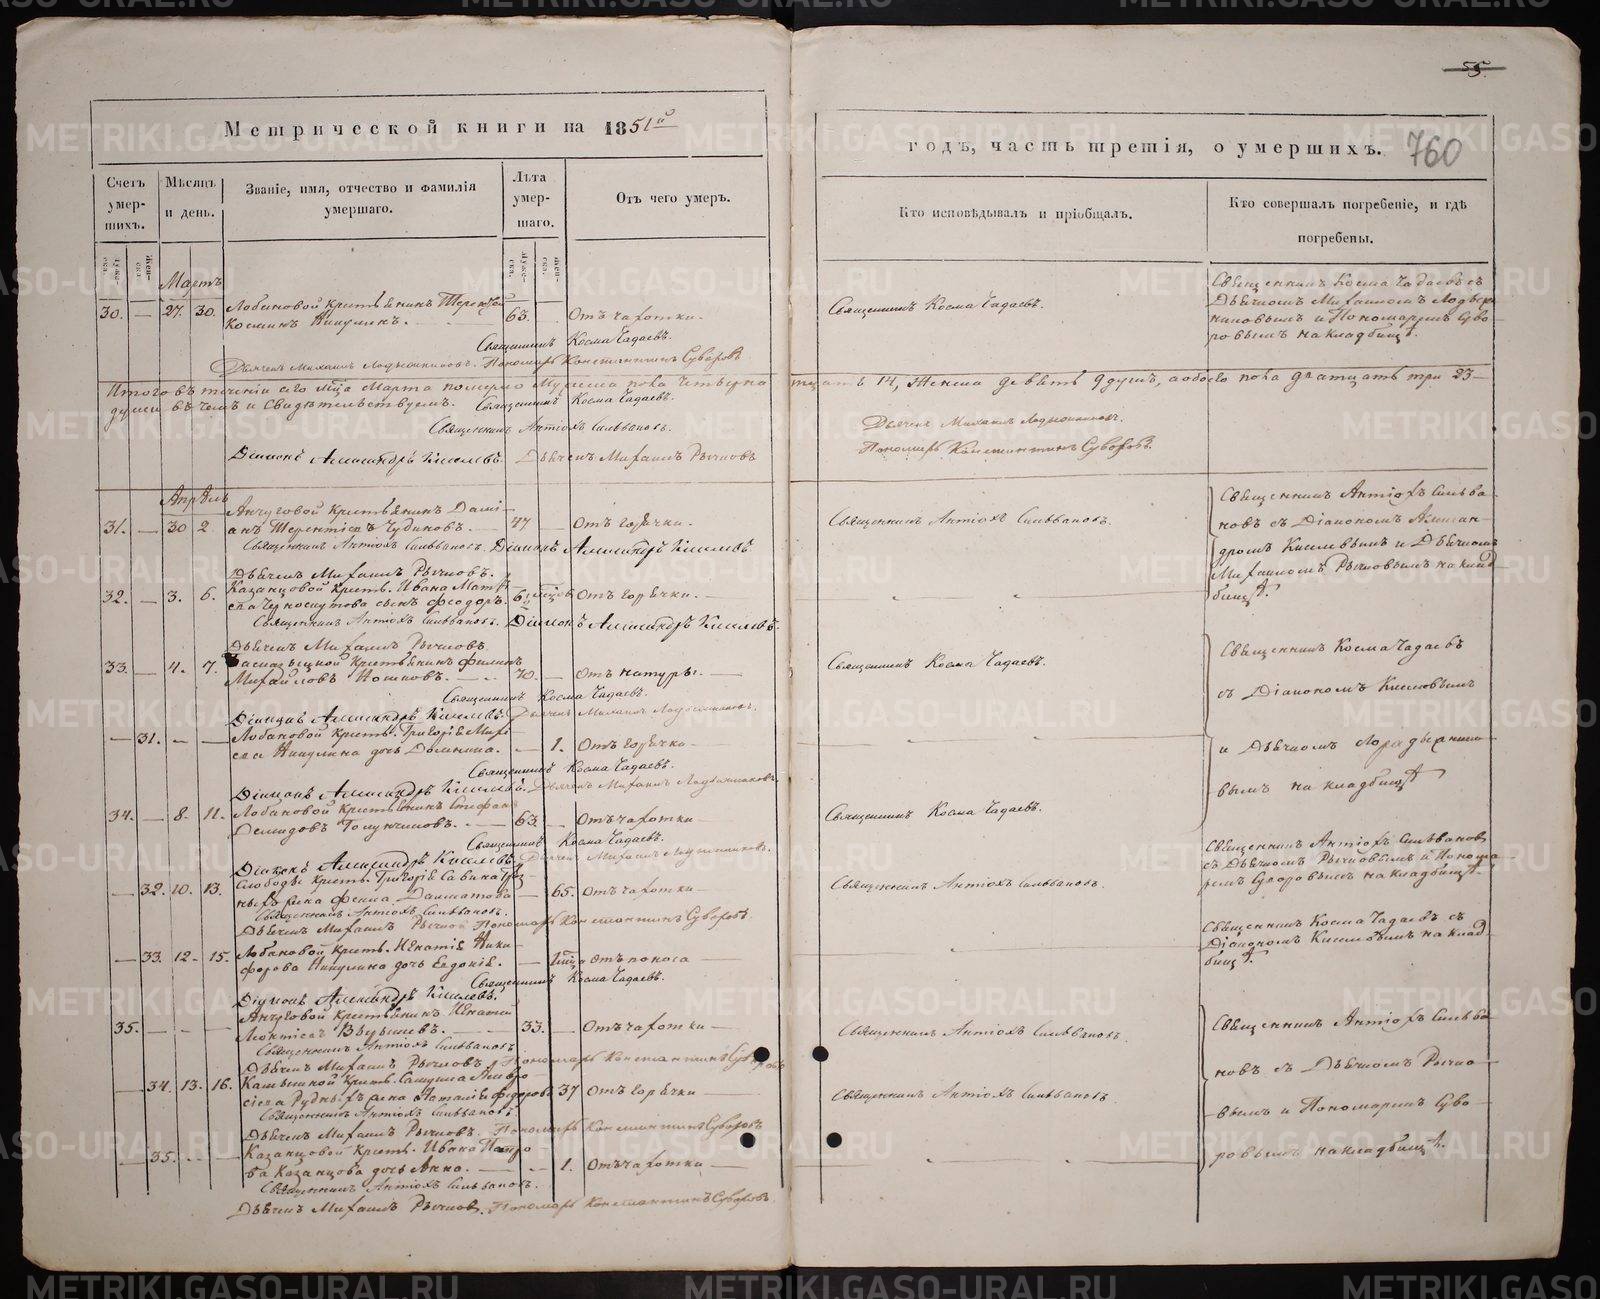 Метрической книги на 1851й
Счетъ умер-шихъ.
Мѣсяцъ и день.
Званіе, имя, отчество и фамилія умершаго.
Лѣта умер-шаго.
Отъ чего умеръ.
Мартъ
30. — 27. 30. Лобановой крестьянинъ Терентій
Космин Никулинъ. 63. Отъ чахотки.
Священникъ Косма Чадаевъ.
Дьячекъ Михаилъ Пономарь Константинъ Суворовъ
Итого въ теченіи сего мѣсяца Марта померло Мужеска пола четырна
души въ чемъ и свидѣтельствуемъ. Священникъ Косма Чадаевъ.
Священникъ Антіохъ Сильвановъ.
Діаконъ Александръ Киселевъ. Дьячекъ Михаилъ Рычковъ
Апрѣль
Анчуговой крестьянинъ Дамі-
31. — 30 2. анъ Терентіевъ Чудиновъ. 47 Отъ горячки.
Священникъ Антіохъ Сильвановъ. Діаконъ Александръ Киселевъ
Дьячекъ Михаилъ Рычковъ.
Казанцовой крест. Ивана Матѳ
32. — 3. 6. сынъ Ѳеодоръ. Отъ горячки.
Священникъ Антіохъ Сильвановъ. Діаконъ Александръ Киселевъ.
Дьячекъ Михаилъ Рычковъ.
крестьянинъ Филипъ
33. — 4. 7. Михайловъ 70. — Отъ натуры.
Священникъ Косма Чадаевъ.
Діаконъ Александръ Киселевъ. Дьячекъ Михаилъ
Лобановой крест. Григорія Михе
— 31. — — Никулина дочь Домнина. — 1. Отъ горячки
Священникъ Косма Чадаевъ.
Діаконъ Александръ Киселевъ. Дьячекъ Михаилъ
Лобановой крестьянинъ Стефанъ
34. — 8. 11. Демидовъ 63. Отъ чахотки
Священникъ Косма Чадаевъ.
Діаконъ Александръ Киселевъ. Дьячекъ Михаилъ
Слободы крест. Григорія Савина
— 32. 10. 13. жена Далматова — 65. Отъ чахотки
Священникъ Антіохъ Сильвановъ.
Дьячекъ Михаилъ Рычковъ Пономарь Константинъ Суворовъ.
Лобановой крест. Игнатія Ники-
— 33. 12. 15. форова Никулина дочь Евдокія. Отъ поноса
Священникъ Косма Чадаевъ.
Діаконъ Александръ Киселевъ.
Анчуговой крестьянинъ Игнатій
35. — — — Леонтіевъ 33. — Отъ чахотки
Священникъ Антіохъ Сильвановъ
Дьячекъ Михаилъ Рычковъ. Пономарь Константинъ Суворовъ
— 34. 13. 16. жена Наталія Ѳедорова 37 Отъ горячки
Священникъ Антіохъ Сильвановъ.
Дьячекъ Михаилъ Рычковъ. Пономарь Константинъ Суворовъ
Казанцовой крест. Ивана Петро
— 35. — — ва Казанцова дочь Анна. — 1. Отъ чахотки
Священникъ Антіохъ Сильвановъ.
Дьячекъ Михаилъ Рычковъ. Пономарь Константинъ Суворовъ.
55.
760
годъ, часть третія, о умершихъ.
Кто исповѣдывалъ и пріобщалъ.
Кто совершалъ погребеніе, и гдѣ погребены.
Священникъ Косма Чадаевъ.
Священникъ Косма Чадаевъ съ
Дьячкомъ Михаиломъ
и Пономаремъ Суво-
ровымъ на кладбищѣ.
тцать 14, Женска девять 9 душъ, а обоего пола дватцать три 23
Дьячекъ Михаилъ
Пономарь Константинъ Суворовъ.
Священникъ Антіохъ Сильвановъ.
Священникъ Антіохъ Сильва-
новъ съ Діакономъ Алексан-
дромъ Киселевымъ и Дьячкомъ
Михаиломъ Рычковымъ на клад-
бищѣ.
Священникъ Косма Чадаевъ.
Священникъ Косма Чадаевъ
съ Діакономъ Киселевымъ
и Дьячкомъ
вымъ на кладбищѣ
Священникъ Косма Чадаевъ.
Священникъ Антіохъ Сильвановъ
съ Дьячкомъ Рычковымъ и Понома-
ремъ Суворовымъ на кладбищѣ.
Священникъ Антіохъ Сильвановъ.
Священникъ Косма Чадаевъ съ
Діакономъ Киселевымъ на клад-
бищѣ.
Священникъ Антіохъ Сильвановъ.
Священникъ Антіохъ Сильва-
новъ съ Дьячкомъ Рычко-
вымъ и Пономаремъ Суво-
ровымъ на кладбищѣ.
Священникъ Антіохъ Сильвановъ.
METRIKI.GASO-URAL.RU